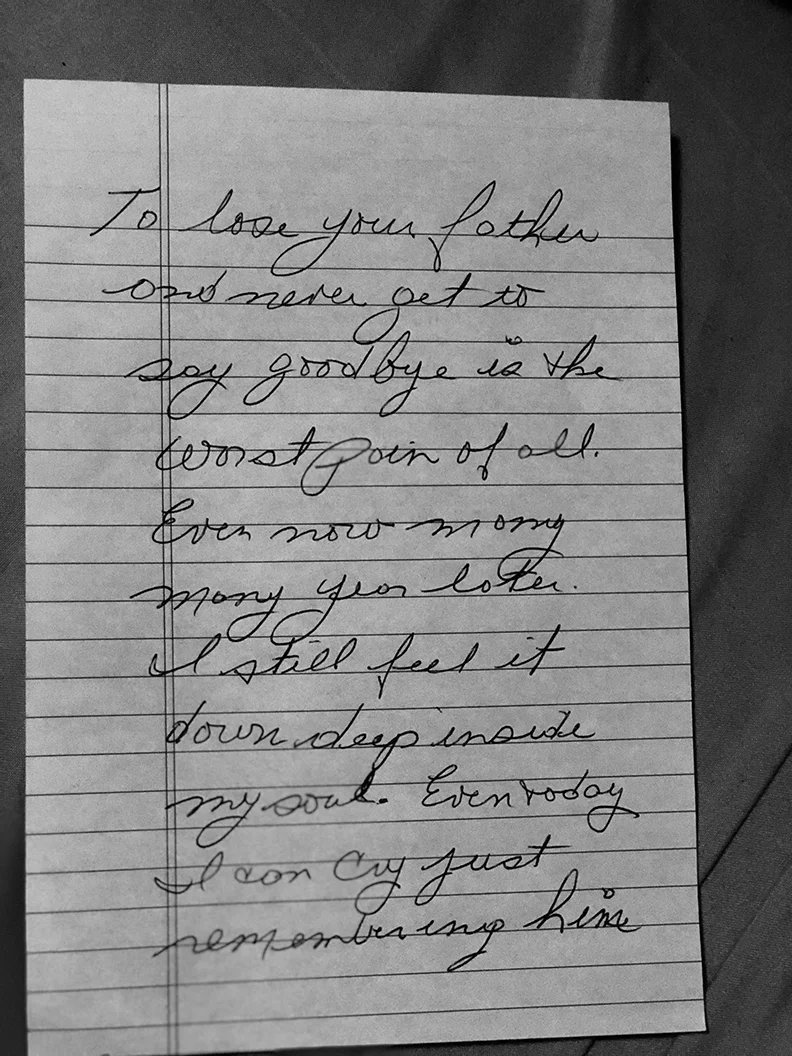 To lose your father
and never get to
say goodbye is the
worst pain of all.
Even now many
many year later.
I still feel it
down deep inside
my soul. Even today
I can cry just
remembering him